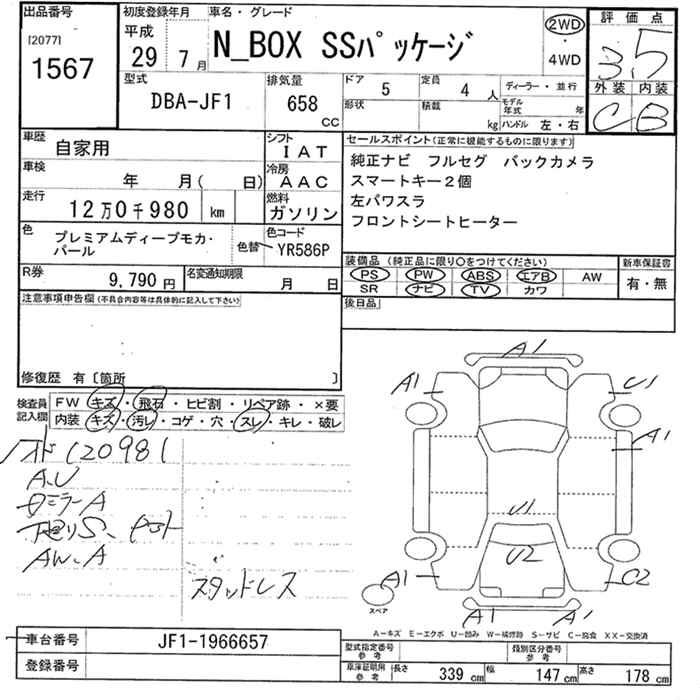 出品番号 初度登録年月 車名・グレード 2WD 評価点
[2077] 平成 N_BOX SSパッケージ ・ 3.5
1567 29 7月 4WD
型式 排気量 ドア 5 定員 4人 ディーラー・並行 外装 内装
DBA-JF1 658 CC 形状 積載 kg モデル年式 年 C B
ハンドル 左・右
車歴 自家用 シフト IAT セールスポイント(正常に機能するものに限ります)
車検 年 月( 日) 冷房 AAC 純正ナビ フルセグ バックカメラ
走行 12万0千980 km 燃料 ガソリン スマートキー2個
左パワスラ
フロントシートヒーター
色 プレミアムディープモカ・パール 色替 色コード YR586P
装備品(純正品に限り○をつけてください) 新車保証書
R券 9,790円 名変通知期限 月 日 PS PW ABS エアB AW 有・無
SR ナビ TV カワ
注意事項申告欄(不具合内容等は具体的に記入して下さい) 後日品
修復歴 有〔箇所 〕
検査員記入欄 FW キズ・飛石・ヒビ割・リペア跡・×要
内装 キズ・汚レ・コゲ・穴・スレ・キレ・破レ
120981
A.U
ミラーA
AW.A
スタッドレス
A1
A1 U1
A1
U1
U2
A1 C2
A1 A1
スペア
A-キズ E-エクボ U-凹み W-補修跡 S-サビ C-腐食 XX-交換済
車台番号 JF1-1966657 型式指定番号 参考 類別区分番号 参考
登録番号 車庫証明用 参考 長さ 339cm 幅 147cm 高さ 178cm